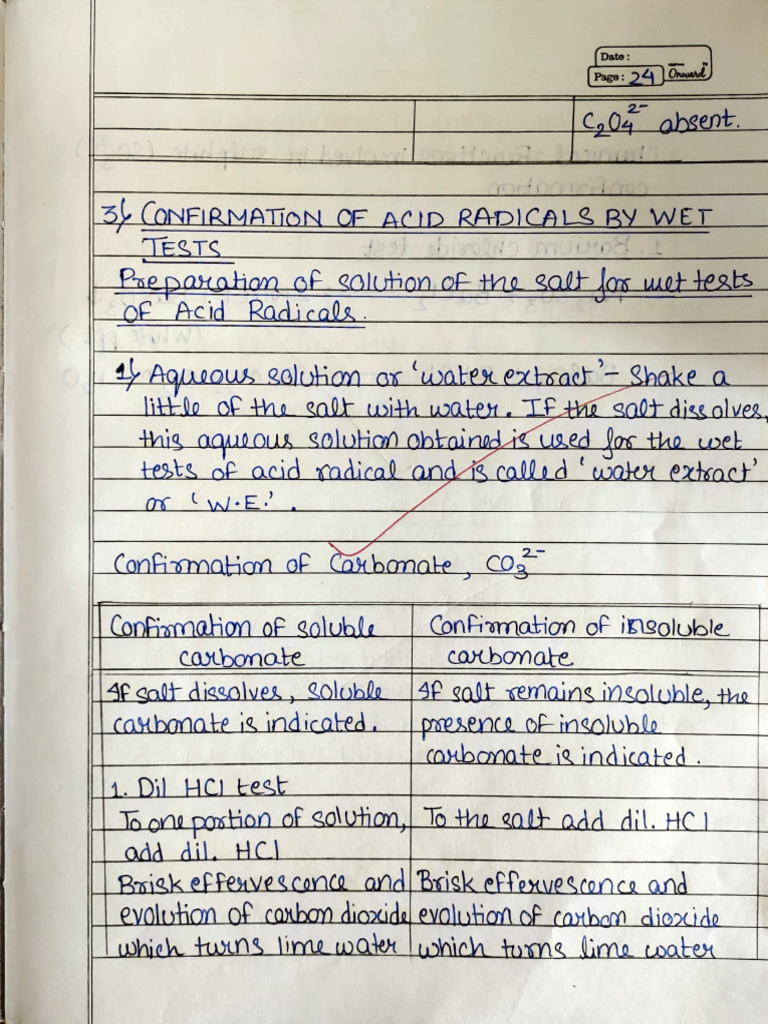 Date :
Page : 24 Onward
C₂O₄²⁻ absent.
3) CONFIRMATION OF ACID RADICALS BY WET
TESTS
Preparation of solution of the salt for wet tests
of Acid Radicals.
1) Aqueous solution or 'water extract'- Shake a
little of the salt with water. If the salt dissolves,
this aqueous solution obtained is used for the wet
tests of acid radical and is called 'water extract'
or 'W.E.'.
Confirmation of Carbonate, CO₃²⁻
Confirmation of soluble
carbonate
Confirmation of insoluble
carbonate
If salt dissolves, soluble
carbonate is indicated.
If salt remains insoluble, the
presence of insoluble
carbonate is indicated.
1. Dil HCl test
To one portion of solution,
add dil. HCl
To the salt add dil. HCl
Brisk effervescence and
evolution of carbon dioxide
which turns lime water
Brisk effervescence and
evolution of carbon dioxide
which turns lime water